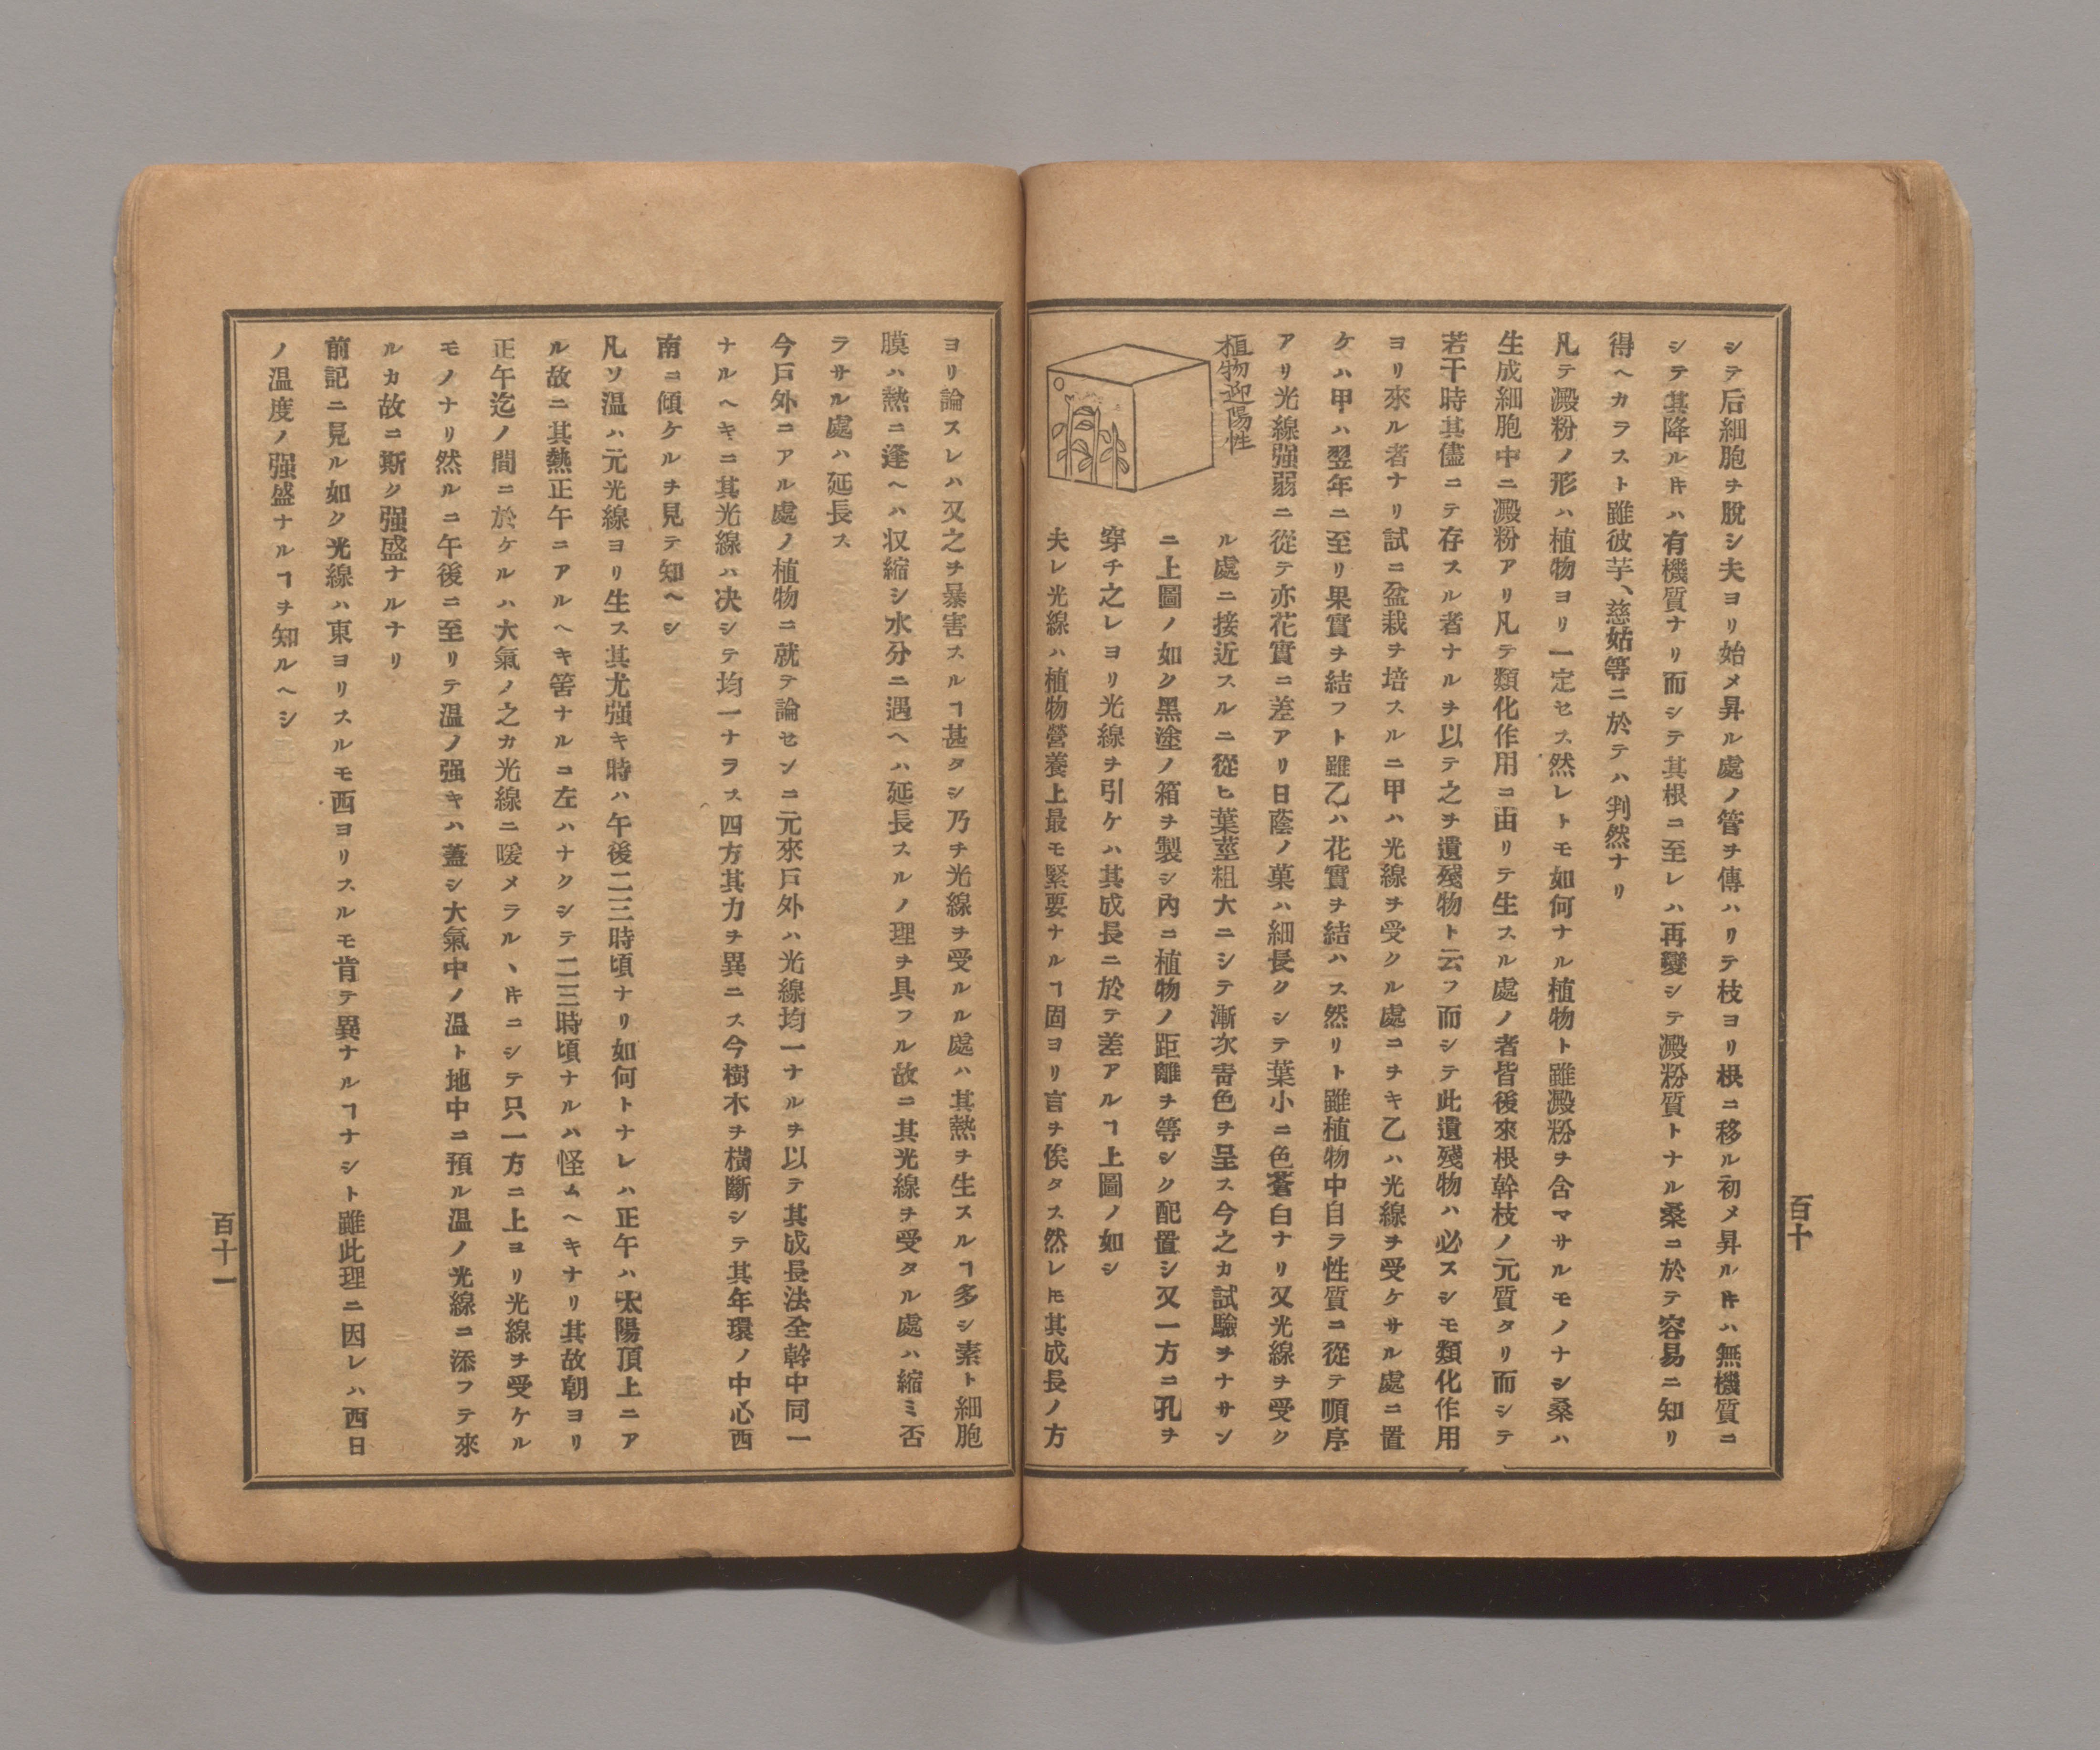 シテ后細胞ヲ脫シ夫ヨリ始メ昇ル處ノ管ヲ傳ハリテ枝ヨリ根ニ移ル初メ昇ルキハ無機質ニ
シテ其降ルキハ有機質ナリ而シテ其根ニ至レハ再變シテ澱粉質トナル桑ニ於テ容易ニ知リ
得ヘカラスト雖彼芋、慈姑等ニ於テハ判然ナリ
凡テ澱粉ノ形ハ植物ヨリ一定セス然レトモ如何ナル植物ト雖澱粉ヲ含マサルモノナシ桑ハ
生成細胞中ニ澱粉アリ凡テ類化作用ニ由リテ生スル處ノ者皆後來根幹枝ノ元質タリ而シテ
若干時其儘ニテ存スル者ナルヲ以テ之ヲ遺殘物ト云フ而シテ此遺殘物ハ必スシモ類化作用
ヨリ來ル者ナリ試ニ盆栽ヲ培スルニ甲ハ光線ヲ受クル處ニヲキ乙ハ光線ヲ受ケサル處ニ置
ケハ甲ハ翌年ニ至リ果實ヲ結フト雖乙ハ花實ヲ結ハス然リト雖植物中自ラ性質ニ從テ順序
アリ光線强弱ニ從テ亦花實ニ差アリ日蔭ノ菓ハ細長クシテ葉小ニ色蒼白ナリ又光線ヲ受ク
植物迎陽性
ル處ニ接近スルニ從ヒ葉莖粗大ニシテ漸次靑色ヲ呈ス今之カ試驗ヲナサン
ニ上圖ノ如ク黑塗ノ箱ヲ製シ內ニ植物ノ距離ヲ等シク配置シ又一方ニ孔ヲ
穿チ之レヨリ光線ヲ引ケハ其成長ニ於テ差アルヿ上圖ノ如シ
夫レ光線ハ植物營養上最モ緊要ナルヿ固ヨリ言ヲ俟タス然レ𪜈其成長ノ方
百十
ヨリ論スレハ又之ヲ暴害スルヿ甚タシ乃チ光線ヲ受ルル處ハ其熱ヲ生スルヿ多シ素ト細胞
膜ハ熱ニ逢ヘハ収縮シ水分ニ遇ヘハ延長スルノ理ヲ具フル故ニ其光線ヲ受タル處ハ縮ミ否
ラサル處ハ延長ス
今戶外ニアル處ノ植物ニ就テ論センニ元來戶外ハ光線均一ナルヲ以テ其成長法全幹中同一
ナルヘキニ其光線ハ决シテ均一ナラス四方其力ヲ異ニス今樹木ヲ橫斷シテ其年環ノ中心西
南ニ傾ケルヲ見テ知ヘシ
凡ソ溫ハ元光線ヨリ生ス其尤强キ時ハ午後二三時頃ナリ如何トナレハ正午ハ太陽頂上ニア
ル故ニ其熱正午ニアルヘキ筈ナルニ左ハナクシテ二三時頃ナルハ怪ムヘキナリ其故朝ヨリ
正午迄ノ間ニ於ケルハ大氣ノ之カ光線ニ暖メラルヽキニシテ只一方ニ上ヨリ光線ヲ受ケル
モノナリ然ルニ午後ニ至リテ溫ノ强キハ蓋シ大氣中ノ溫ト地中ニ預ル溫ノ光線ニ添フテ來
ルカ故ニ斯ク强盛ナルナリ
前記ニ見ル如ク光線ハ東ヨリスルモ西ヨリスルモ肯テ異ナルヿナシト雖此理ニ因レハ西日
ノ溫度ノ强盛ナルヿヲ知ルヘシ
百十一